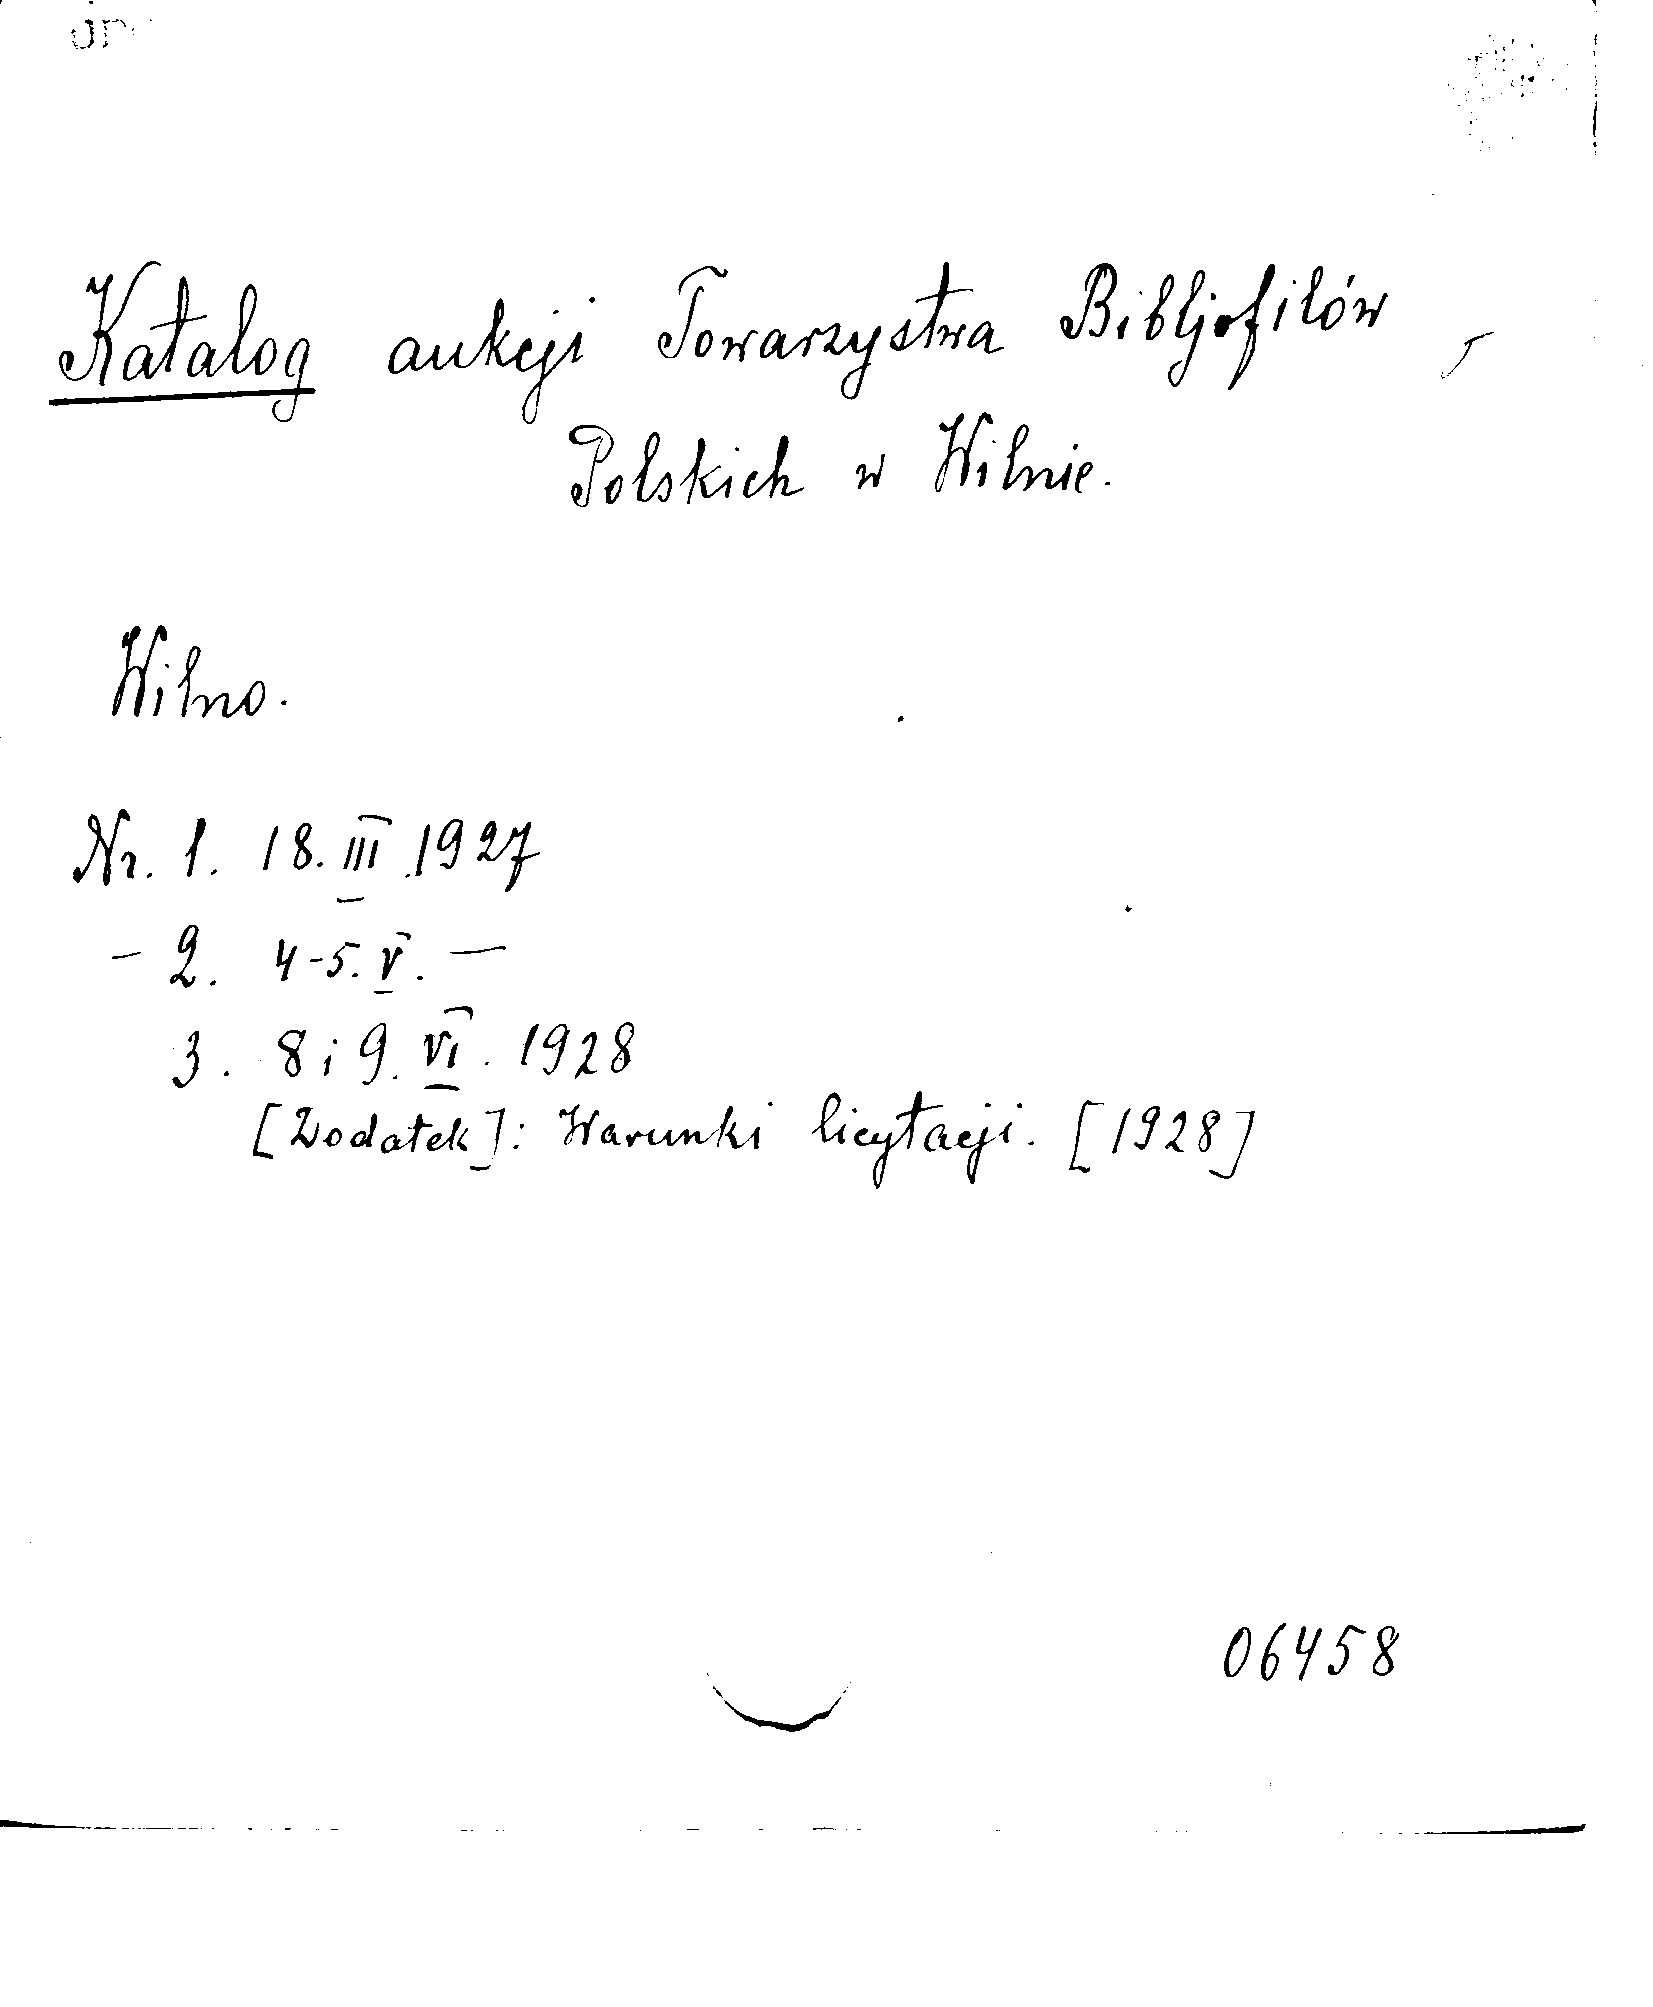 Katalog aukcji Towarzystwa Bibljofilów
Polskich w Wilnie.
Wilno.
Nr. 1. 18. III. 1927
— 2. 4-5. V. —
3. 8 i 9. VI. 1928
[Dodatek]: Warunki licytacji. [1928]
06458